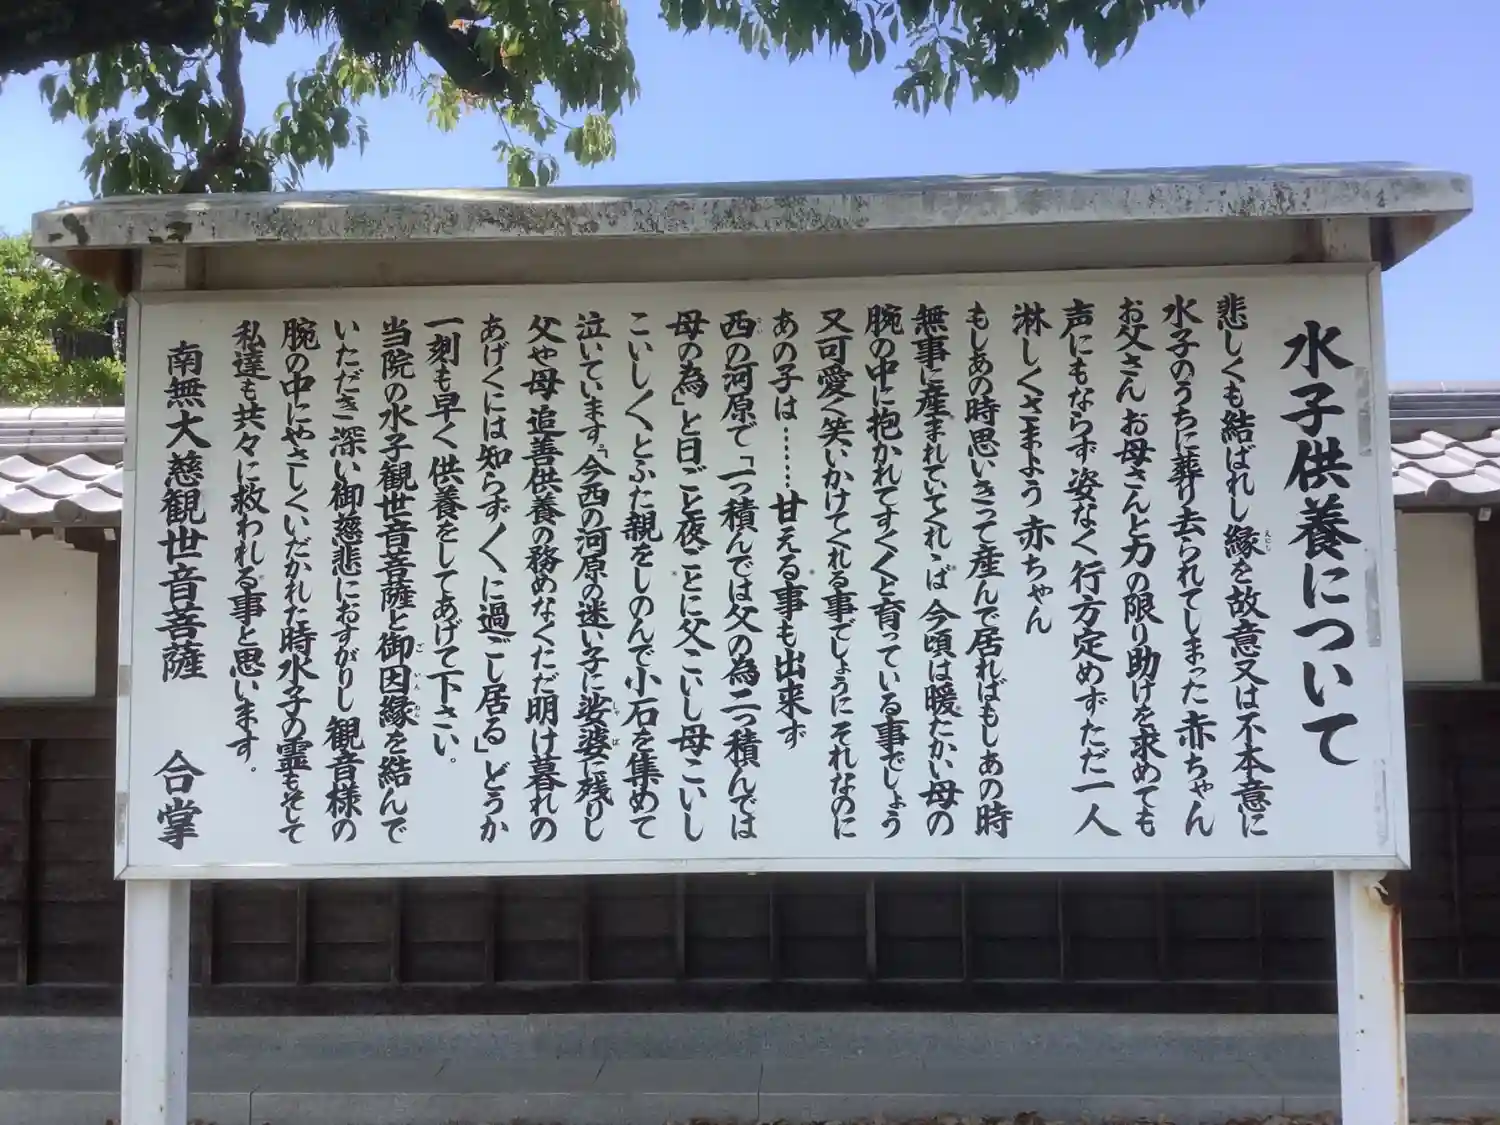 水子供養について
悲しくも結ばれし縁を故意又は不本意に
水子のうちに葬り去られてしまった赤ちゃん
お父さんお母さんと力の限り助けを求めても
声にもならず姿なく行方定めずただ一人
淋しくさまよう赤ちゃん
もしあの時思いきって産んで居ればもしあの時
無事に産まれていてくれゝば 今頃は暖たかい母の
腕の中に抱かれてすくすくと育っている事でしょう
又可愛く笑いかけてくれる事でしょうにそれなのに
あの子は………甘える事も出来ず
西の河原で「一つ積んでは父の為二つ積んでは
母の為」と日ごと夜ごとに父こいし母こいし
こいしくとふた親をしのんで小石を集めて
泣いています。「今西の河原の迷い子に娑婆に残りし
父や母 追善供養の務めなくただ明け暮れの
あげくには知らず〳〵に過ごし居る」どうか
一刻も早く供養をしてあげて下さい。
当院の水子観世音菩薩と御因縁を結んで
いただき深い御慈悲におすがりし観音様の
腕の中にやさしくいだかれた時水子の霊もそして
私達も共々に救われる事と思います。
南無大慈観世音菩薩 合掌